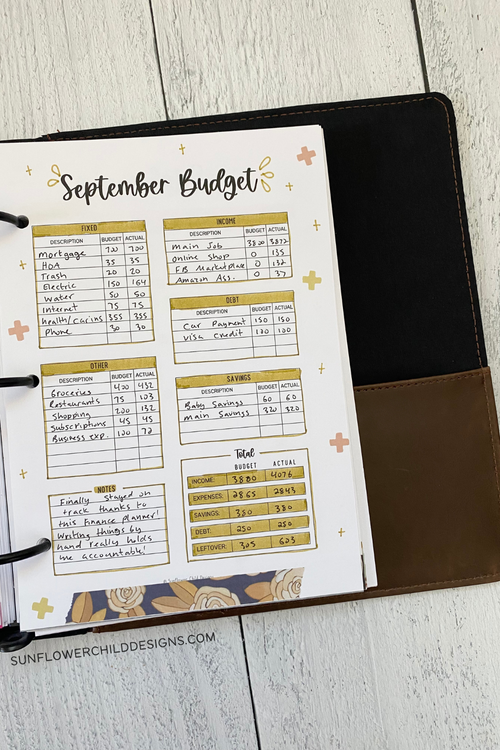 September Budget
FIXED
DESCRIPTION BUDGET ACTUAL
Mortgage 700 700
HOA 35 35
Trash 20 20
Electric 150 164
Water 50 50
Internet 75 75
Health/Car ins 355 355
Phone 30 30
INCOME
DESCRIPTION BUDGET ACTUAL
Main Job 3800 3872
Online Shop 0 135
FB Marketplace 0 132
Amazon Ass. 0 37
DEBT
DESCRIPTION BUDGET ACTUAL
Car Payment 150 150
Visa Credit 100 100
OTHER
DESCRIPTION BUDGET ACTUAL
Groceries 400 432
Restaurants 75 103
Shopping 200 132
Subscriptions 45 45
Business exp. 100 72
SAVINGS
DESCRIPTION BUDGET ACTUAL
Baby Savings 60 60
Main Savings 320 320
NOTES
Finally stayed on
track thanks to
this finance planner!
Writing things by
hand really holds
me accountable!
Total
BUDGET ACTUAL
INCOME: 3800 4076
EXPENSES: 2865 2843
SAVINGS: 380 380
DEBT: 250 250
LEFTOVER: 305 603
SUNFLOWERCHILDDESIGNS.COM